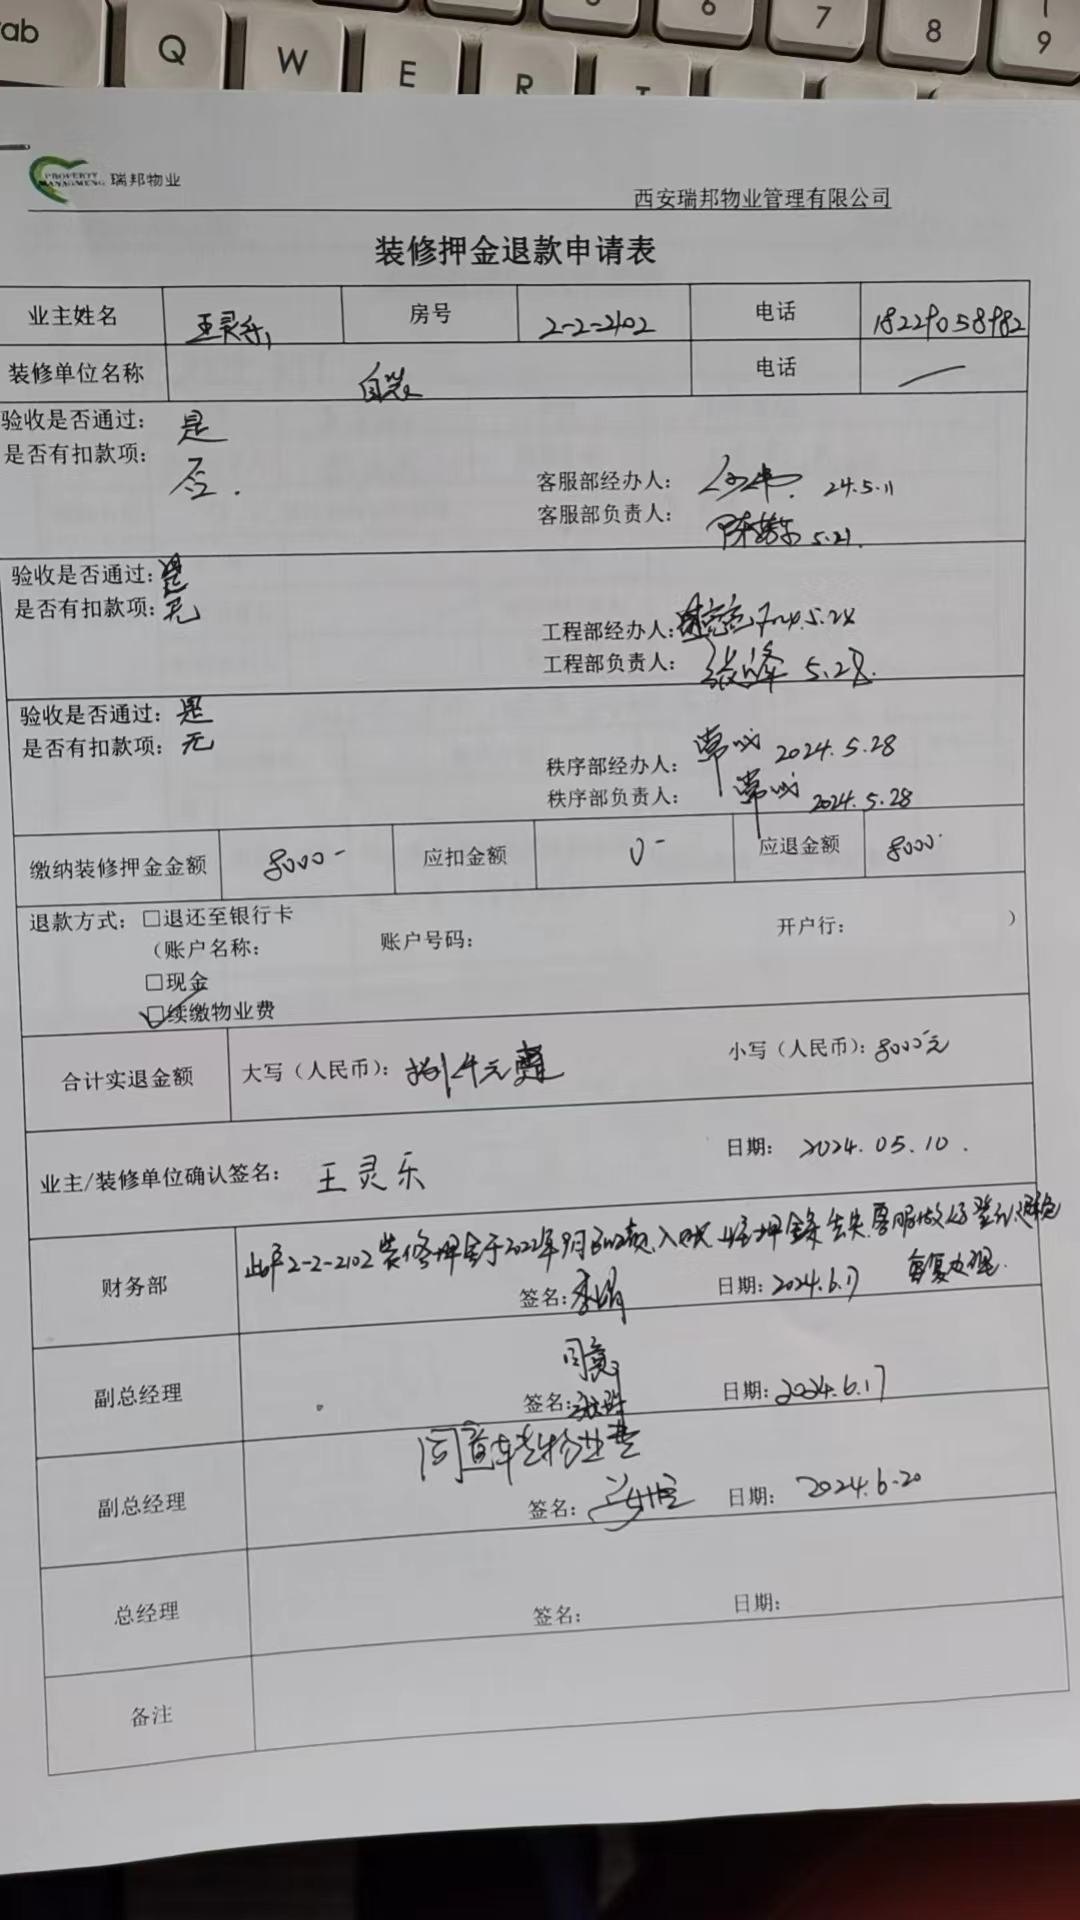 ab Q W E R T 6 7 8 9
PROPERTY
MANAGMENG 瑞邦物业
西安瑞邦物业管理有限公司
装修押金退款申请表
业主姓名 王灵乐 房号 2-2-2102 电话 18229058982
装修单位名称 自装 电话 —
验收是否通过: 是
是否有扣款项: 否.
客服部经办人: 24.5.11
客服部负责人: 5.21.
验收是否通过: 是
是否有扣款项: 无
工程部经办人: 2024.5.28
工程部负责人: 张峰 5.28.
验收是否通过: 是
是否有扣款项: 无
秩序部经办人: 常成 2024.5.28
秩序部负责人: 常成 2024.5.28
缴纳装修押金金额 8000- 应扣金额 0- 应退金额 8000-
退款方式: □退还至银行卡
(账户名称: 账户号码: 开户行: )
□现金
☑续缴物业费
合计实退金额 大写(人民币): 捌仟元整 小写(人民币): 8000元
业主/装修单位确认签名: 王灵乐 日期: 2024.05.10.
财务部 此户2-2-2102装修押金于2022年9月 入账, 押金条丢失, 客服做好登记, 避免
重复办理.
签名: 李娟 日期: 2024.6.17
副总经理 同意
签名: 日期: 2024.6.17
副总经理 同意转物业费
签名: 日期: 2024.6.20
总经理 签名: 日期:
备注